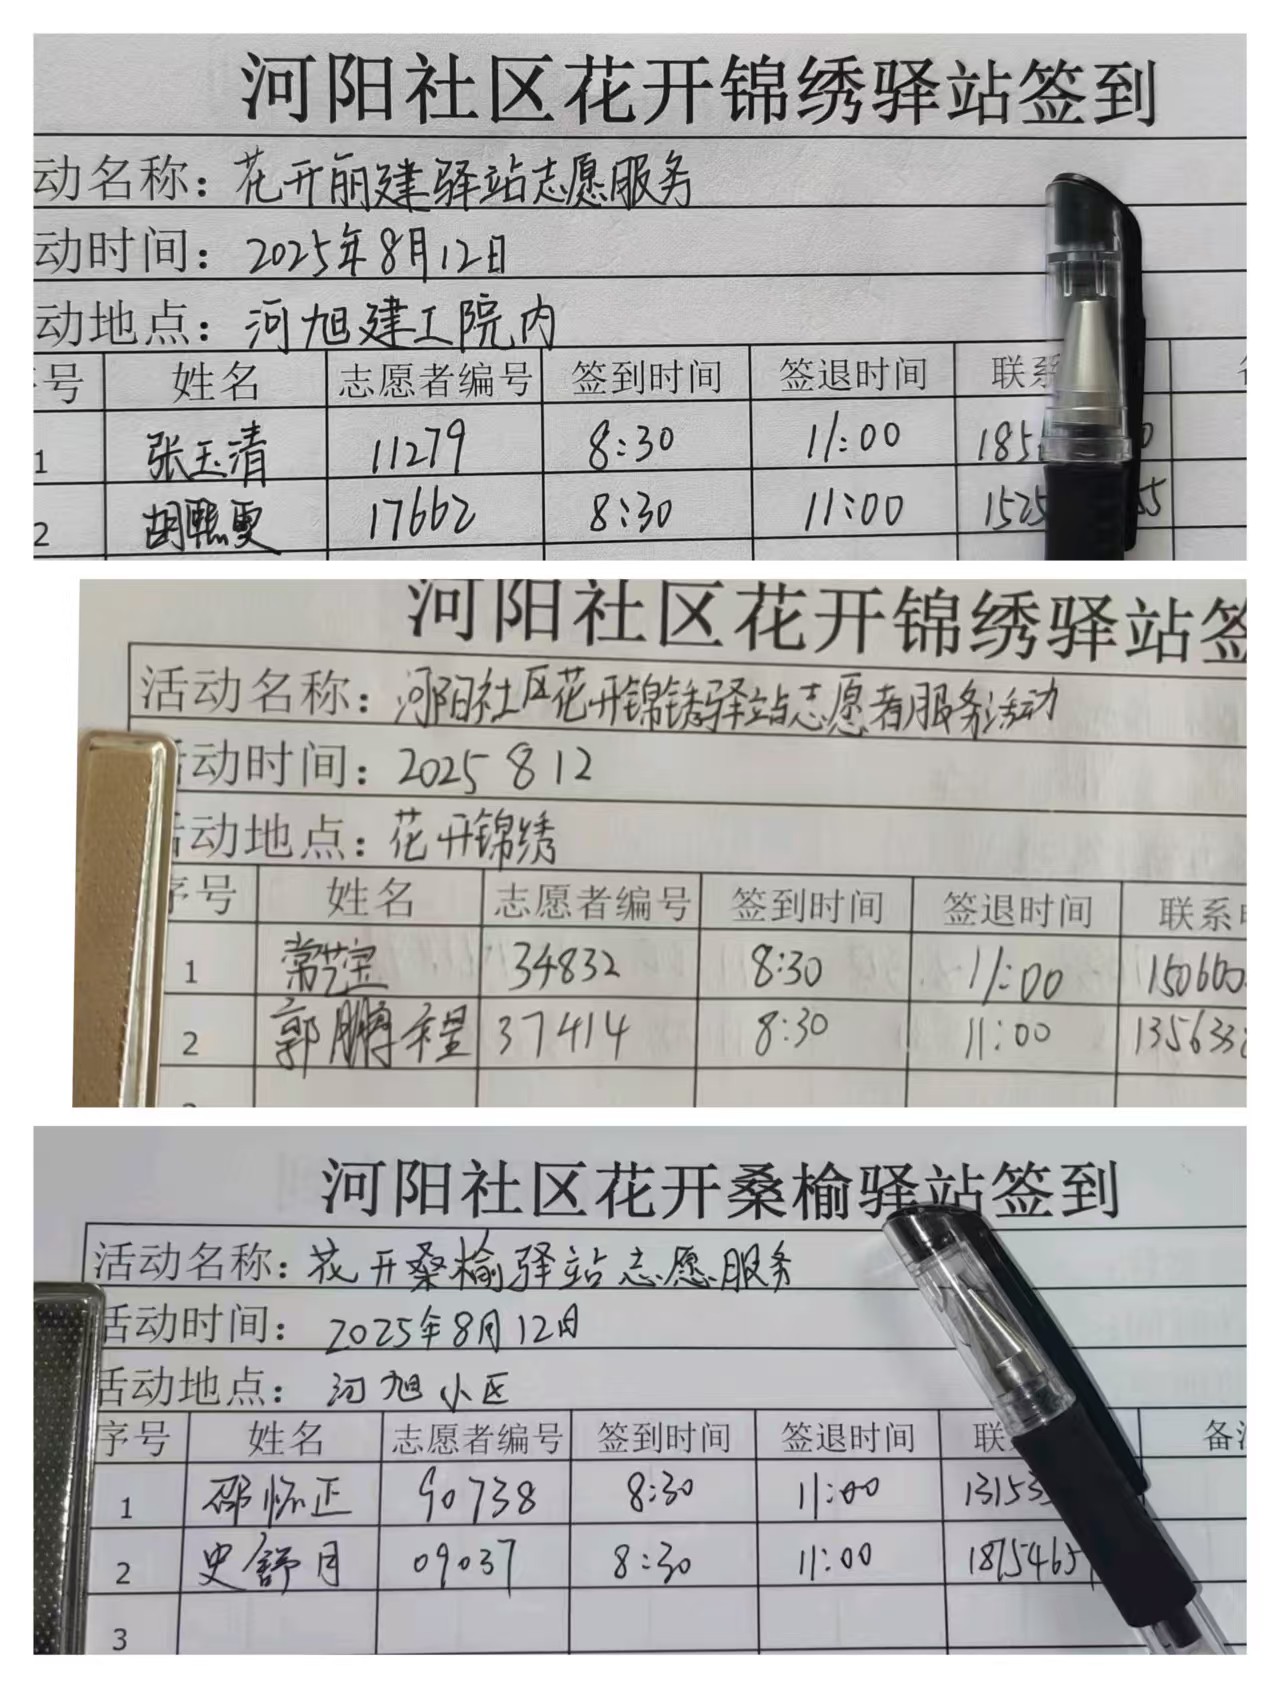 河阳社区花开锦绣驿站签到
动名称：花开丽建驿站志愿服务
动时间：2025年8月12日
动地点：河旭建工院内
号 姓名 志愿者编号 签到时间 签退时间 联系
1 张玉清 11279 8:30 11:00 185
2 胡熙雯 17662 8:30 11:00 1525 55
河阳社区花开锦绣驿站签
活动名称：河阳社区花开锦绣驿站志愿者服务活动
活动时间：2025 8 12
活动地点：花开锦绣
序号 姓名 志愿者编号 签到时间 签退时间 联系
1 常艺宝 34832 8:30 11:00 150660
2 郭鹏程 37414 8:30 11:00 135633
河阳社区花开桑榆驿站签到
活动名称：花开桑榆驿站志愿服务
活动时间：2025年8月12日
活动地点：河旭小区
序号 姓名 志愿者编号 签到时间 签退时间 联 备注
1 邵怀正 90738 8:30 11:00 131533
2 史舒月 09037 8:30 11:00 1875465
3